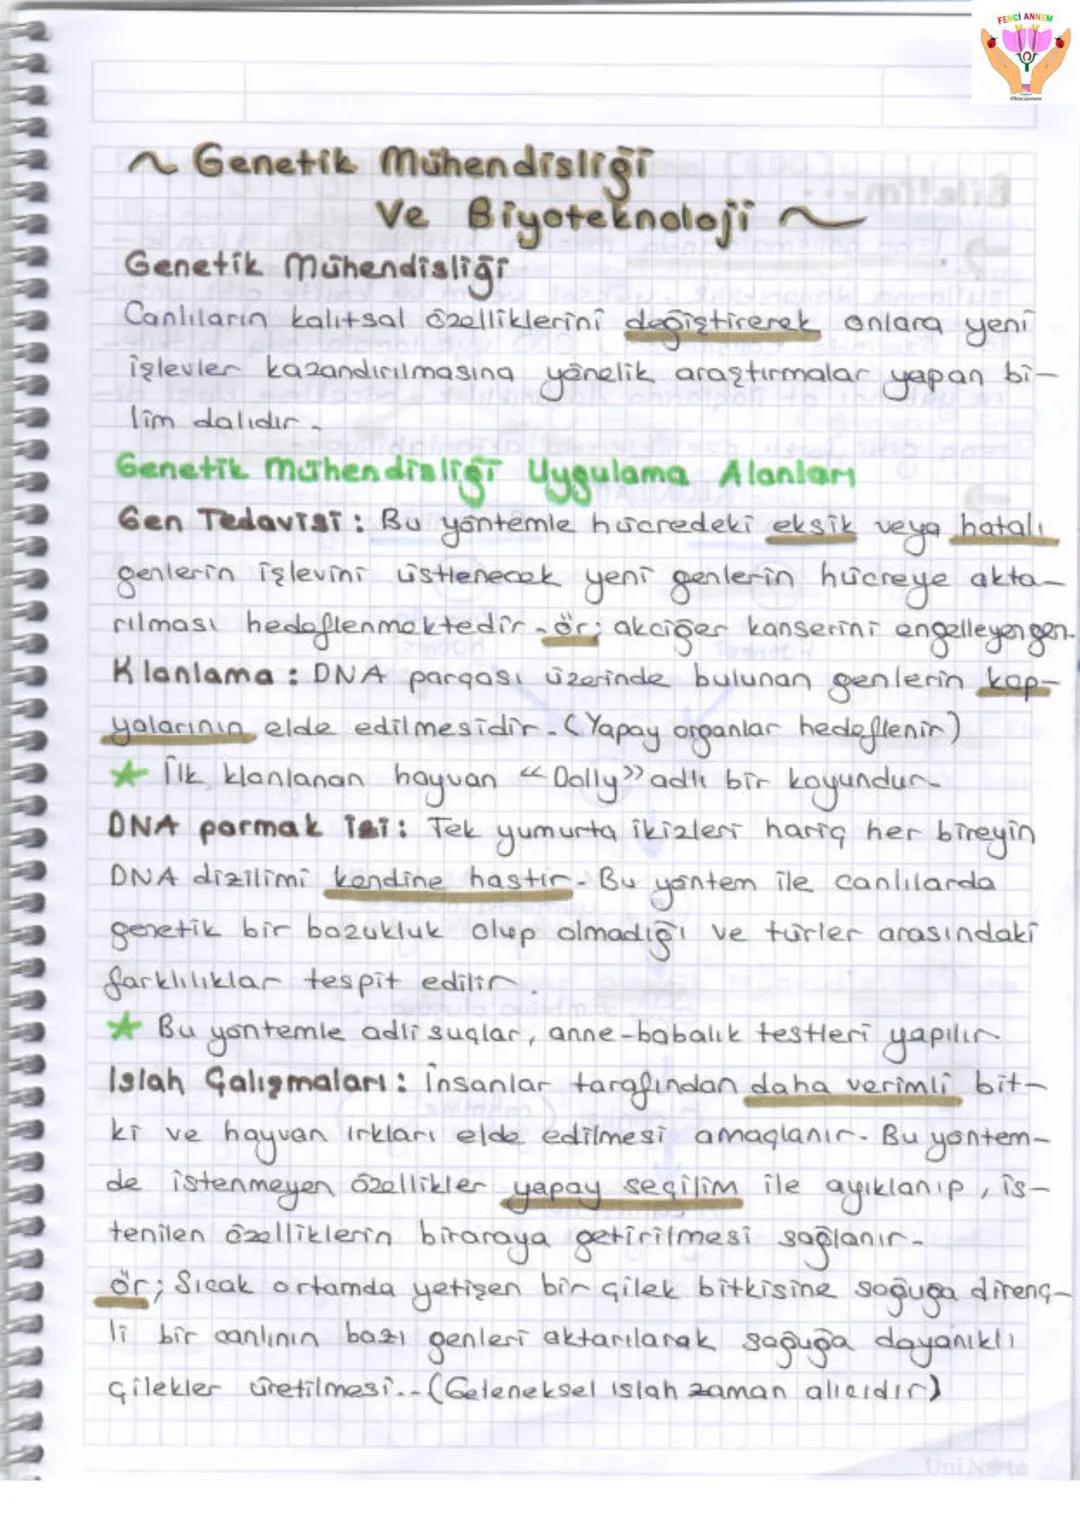 FENCİ ANNEM
~ Genetik Mühendisliği
Ve Biyoteknoloji ~
Genetik Mühendisliği
Canlıların kalıtsal özelliklerini değiştirerek onlara yeni
işlevler kazandırılmasına yönelik araştırmalar yapan bi-
lim dalıdır.
Genetik Mühendisliği Uygulama Alanları
Gen Tedavisi : Bu yöntemle hücredeki eksik veya hatalı
genlerin işlevini üstlenecek yeni genlerin hücreye akta-
rılması hedeflenmektedir. ör; akciğer kanserini engelleyen gen.
Klonlama : DNA parçası üzerinde bulunan genlerin kop-
yalarının elde edilmesidir. (Yapay organlar hedeflenir)
★ İlk klonlanan hayvan "Dolly" adlı bir koyundur.
DNA parmak izi : Tek yumurta ikizleri hariç her bireyin
DNA dizilimi kendine hastır. Bu yöntem ile canlılarda
genetik bir bozukluk olup olmadığı ve türler arasındaki
farklılıklar tespit edilir.
★ Bu yöntemle adli suçlar, anne-babalık testleri yapılır.
Islah Çalışmaları : İnsanlar tarafından daha verimli bit-
ki ve hayvan ırkları elde edilmesi amaçlanır. Bu yöntem-
de istenmeyen özellikler yapay seçilim ile ayıklanıp, is-
tenilen özelliklerin biraraya getirilmesi sağlanır.
ör; Sıcak ortamda yetişen bir çilek bitkisine soğuğa direnç-
li bir canlının bazı genleri aktarılarak soğuğa dayanıklı
çilekler üretilmesi.. (Geleneksel ıslah zaman alıcıdır)
UniNote